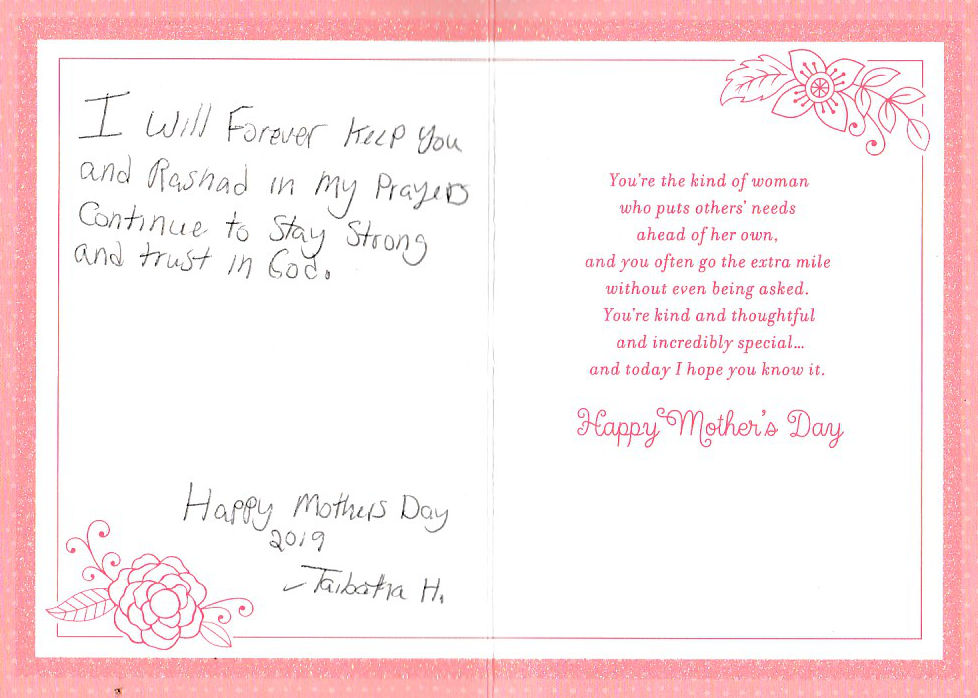 I Will Forever Keep You
and Rashad in My Prayers
Continue to Stay Strong
and trust in God.
Happy Mothers Day
2019
You're the kind of woman
who puts others' needs
ahead of her own,
and you often go the extra mile
without even being asked.
You're kind and thoughtful
and incredibly special...
and today I hope you know it.
Happy Mother's Day